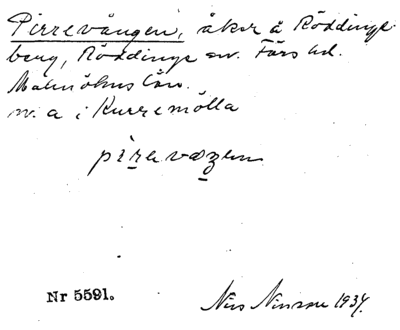 Pirrevången, åker å Röddinge
berg, Röddinge sn. Färs hd.
Malmöhus län.
n. a i Kurremölla
Nr 5591.
Nils Ninsson 1934.